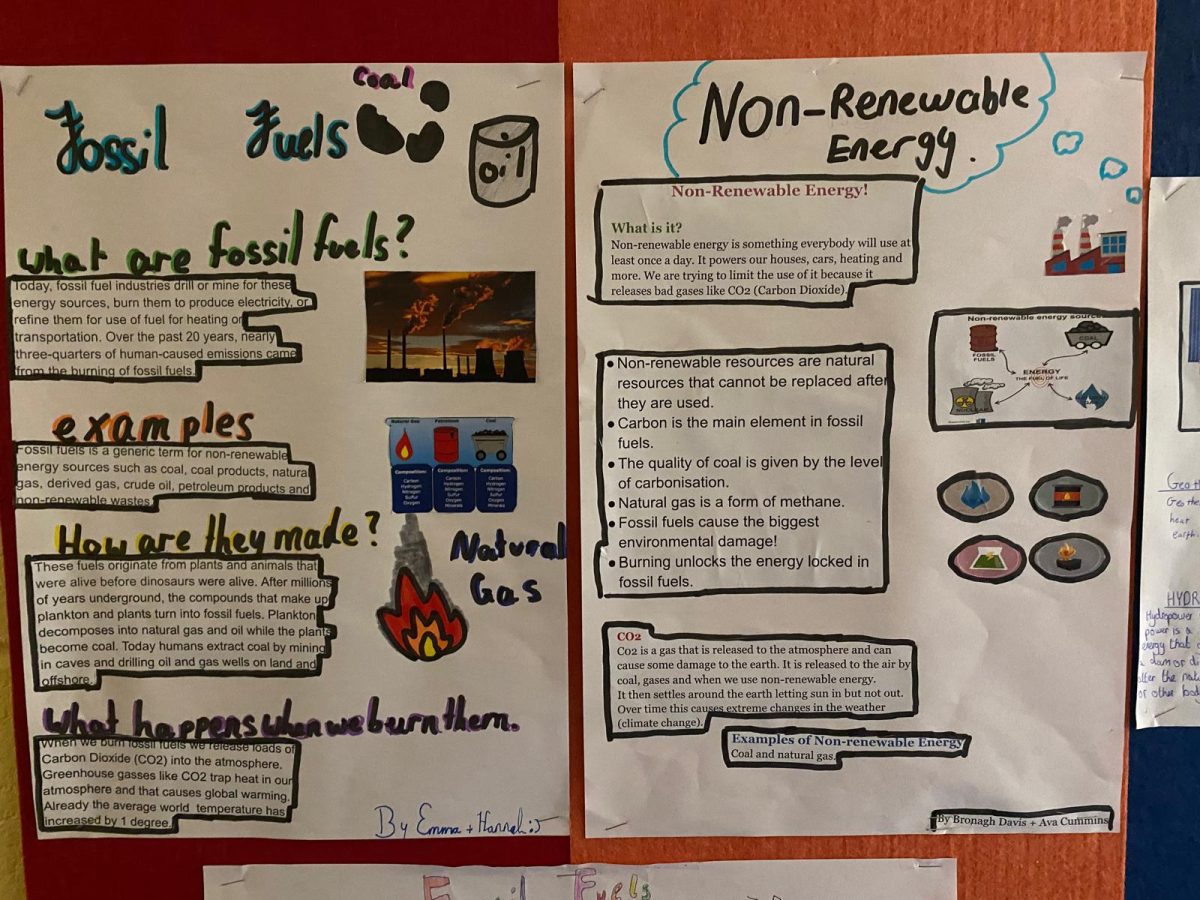 Fossil Fuels
Coal
oil
what are fossil fuels?
Today, fossil fuel industries drill or mine for these
energy sources, burn them to produce electricity, or
refine them for use of fuel for heating or
transportation. Over the past 20 years, nearly
three-quarters of human-caused emissions came
from the burning of fossil fuels.
examples
Fossil fuels is a generic term for non-renewable
energy sources such as coal, coal products, natural
gas, derived gas, crude oil, petroleum products and
non-renewable wastes
Natural Gas
Petroleum
Coal
Composition:
Carbon
Hydrogen
Nitrogen
Sulfur
Oxygen
Composition:
Carbon
Hydrogen
Nitrogen
Sulfur
Oxygen
Minerals
Composition:
Carbon
Hydrogen
Nitrogen
Sulfur
Oxygen
Minerals
How are they made?
These fuels originate from plants and animals that
were alive before dinosaurs were alive. After millions
of years underground, the compounds that make up
plankton and plants turn into fossil fuels. Plankton
decomposes into natural gas and oil while the plants
become coal. Today humans extract coal by mining
in caves and drilling oil and gas wells on land and
offshore.
Natural
Gas
What happens when we burn them.
When we burn fossil fuels we release loads of
Carbon Dioxide (CO2) into the atmosphere.
Greenhouse gasses like CO2 trap heat in our
atmosphere and that causes global warming.
Already the average world temperature has
increased by 1 degree.
By Emma + Hannah :)
Non-Renewable
Energy.
Non-Renewable Energy!
What is it?
Non-renewable energy is something everybody will use at
least once a day. It powers our houses, cars, heating and
more. We are trying to limit the use of it because it
releases bad gases like CO2 (Carbon Dioxide).
Non-renewable energy sources
FOSSIL
FUELS
COAL
ENERGY
THE FUEL OF LIFE
NUCLEAR
• Non-renewable resources are natural
resources that cannot be replaced after
they are used.
• Carbon is the main element in fossil
fuels.
• The quality of coal is given by the level
of carbonisation.
• Natural gas is a form of methane.
• Fossil fuels cause the biggest
environmental damage!
• Burning unlocks the energy locked in
fossil fuels.
CO2
Co2 is a gas that is released to the atmosphere and can
cause some damage to the earth. It is released to the air by
coal, gases and when we use non-renewable energy.
It then settles around the earth letting sun in but not out.
Over time this causes extreme changes in the weather
(climate change).
Examples of Non-renewable Energy
Coal and natural gas.
By Bronagh Davis + Ava Cummins
heat
earth.
HYDR
Hydropower
power is a
energy that
a dam or di
or other bod
Fossil Fuels